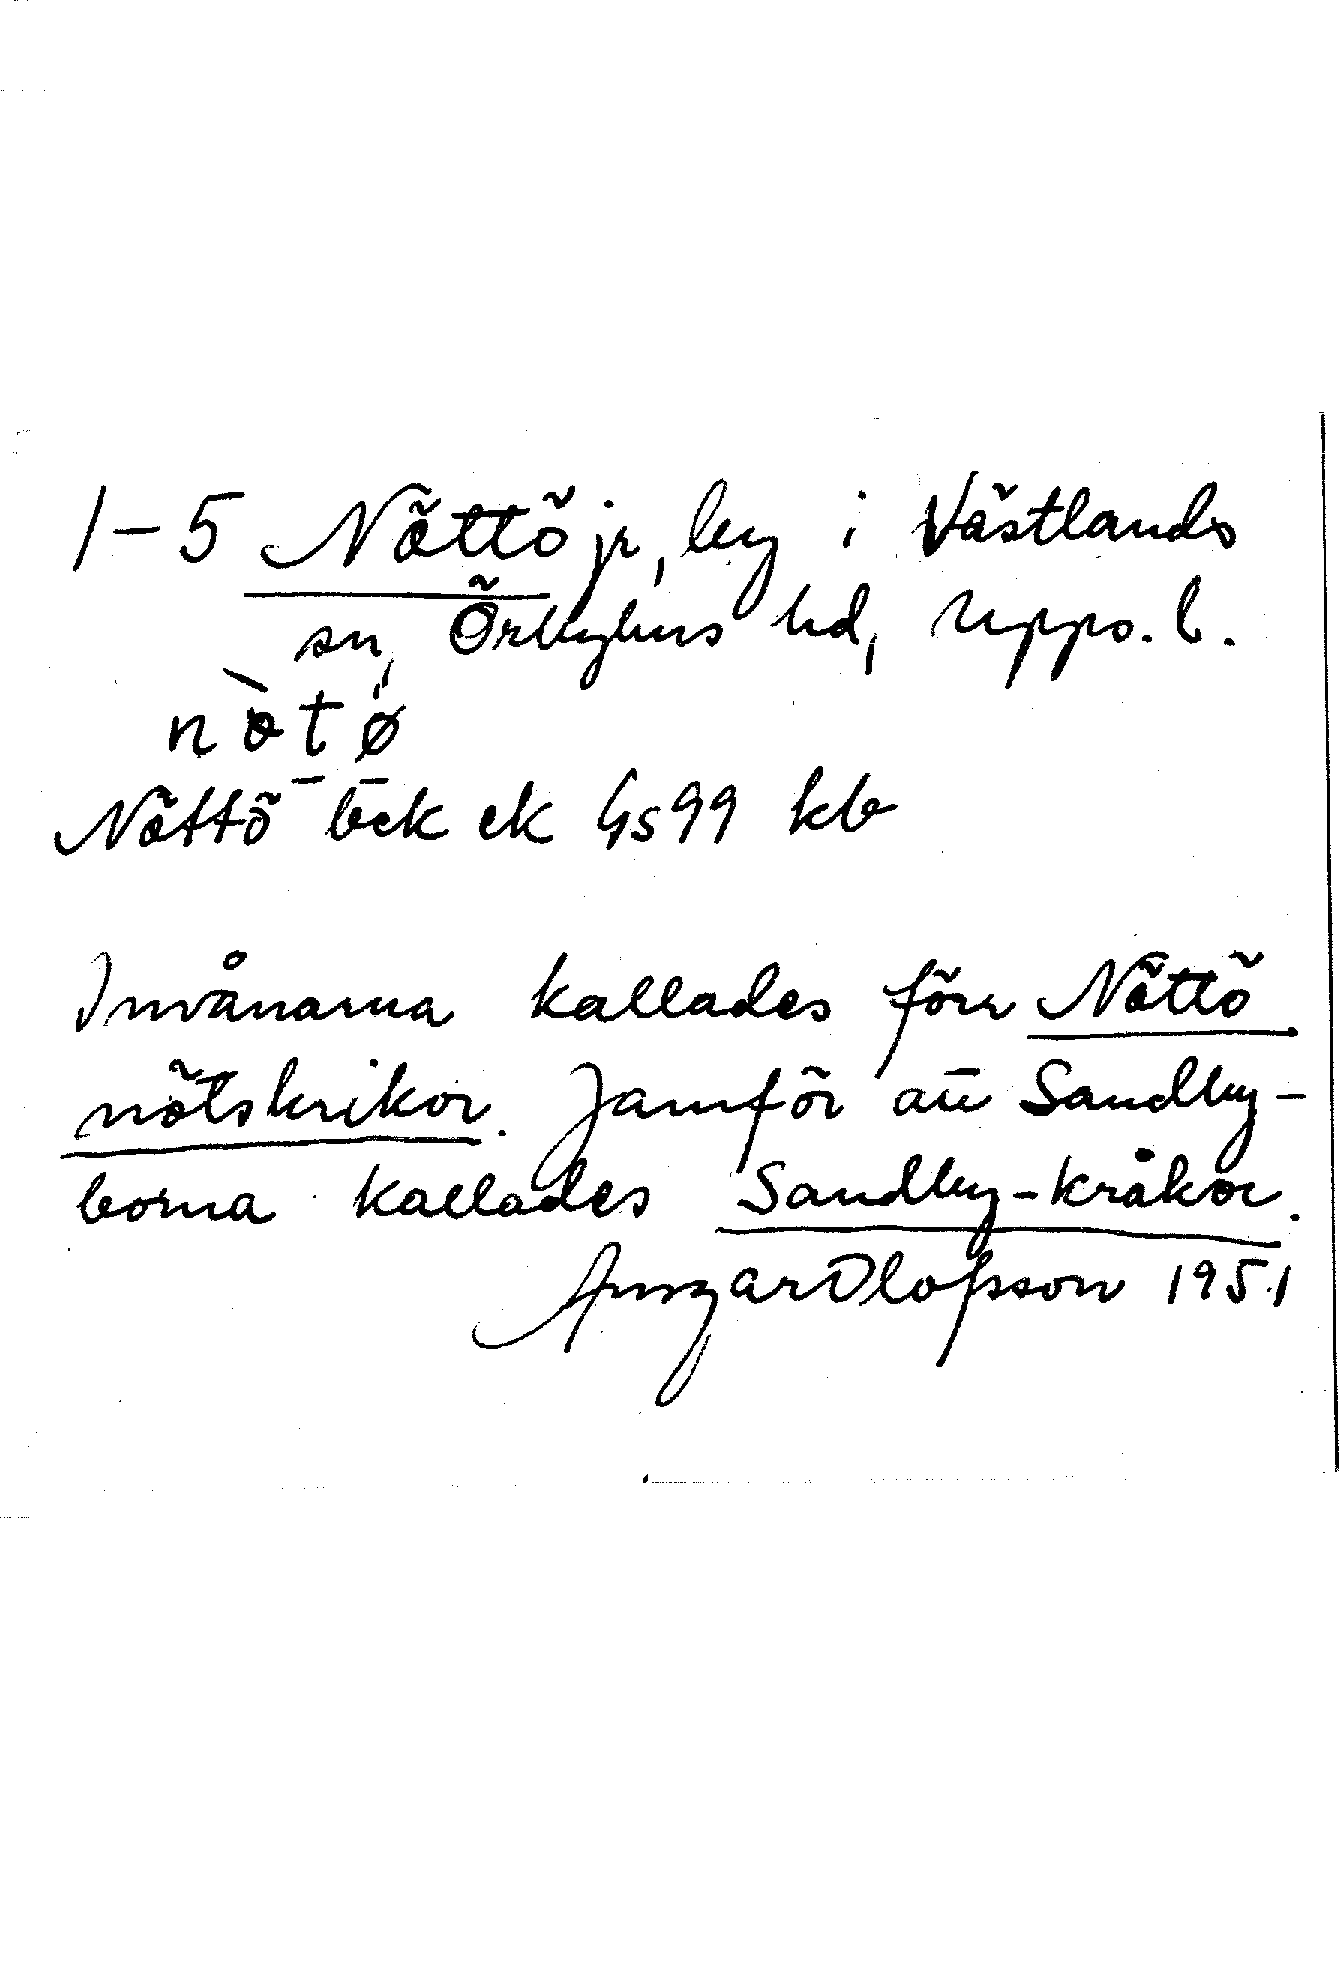 1-5 Nöttö jr, by i Västlands
sn, Örbyhus hd, Upps. l.
nòtø
Nöttö bek ek Gs99 kb
Invånarna kallades förr Nöttö
nötskrikor. Jämför att Sandby-
borna kallades Sandby-kråkor.
Ansgar Olofsson 1951